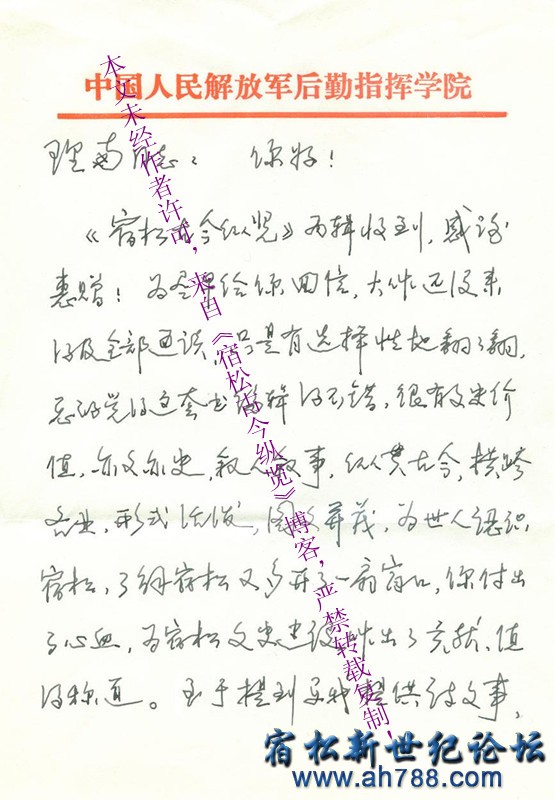 中国人民解放军后勤指挥学院
理南同志：你好！
《宿松古今纵览》两辑收到，感谢
惠赠！为尽早给你回信，大作还没来
得及全部通读，只是有选择性地翻了翻，
总的觉得这套书编辑得不错，很有文史价
值，亦文亦史，叙人叙事，纵贯古今，横跨
各业，形式活泼，图文并茂，为世人认识
宿松，了解宿松又多开了一扇窗口，你付出
了心血，为宿松文史建设作出了贡献，值
得称道。至于提到要我提供诗文事，
本文未经作者许可，来自《宿松古今纵览》博客，严禁转载复制！
宿松新世纪论坛
www.ah788.com